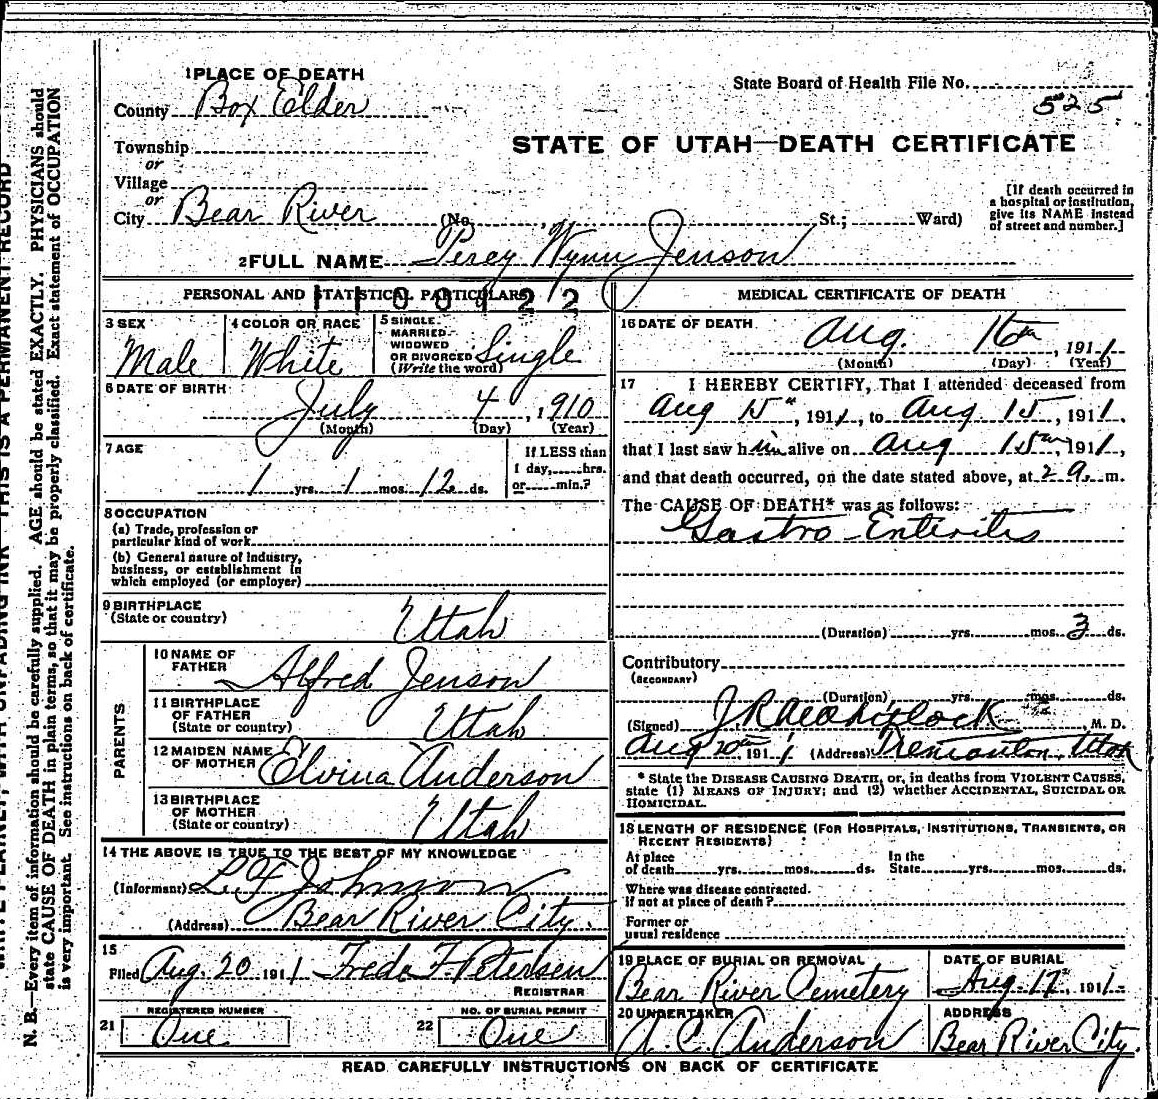 1 PLACE OF DEATH
County Box Elder
State Board of Health File No. 525
STATE OF UTAH—DEATH CERTIFICATE
Township
or
Village
or
City Bear River (No. , St.; Ward)
[If death occurred in
a hospital or institution,
give its NAME instead
of street and number.]
2 FULL NAME Percy Wynn Jenson
PERSONAL AND STATISTICAL PARTICULARS
3 SEX
Male
4 COLOR OR RACE
White
5 SINGLE
MARRIED
WIDOWED
OR DIVORCED
(Write the word)
Single
6 DATE OF BIRTH
July 4, 1910
(Month) (Day) (Year)
7 AGE
1 yrs. 1 mos. 12 ds.
If LESS than
1 day, hrs.
or min.?
8 OCCUPATION
(a) Trade, profession or
particular kind of work
(b) General nature of industry,
business, or establishment in
which employed (or employer)
9 BIRTHPLACE
(State or country) Utah
PARENTS
10 NAME OF
FATHER Alfred Jenson
11 BIRTHPLACE
OF FATHER
(State or country) Utah
12 MAIDEN NAME
OF MOTHER Elvina Anderson
13 BIRTHPLACE
OF MOTHER
(State or country) Utah
14 THE ABOVE IS TRUE TO THE BEST OF MY KNOWLEDGE
(Informant) L. F. Johnson
(Address) Bear River City.
15
Filed Aug. 20 1911 Frede F. Petersen
REGISTRAR
REGISTERED NUMBER
21 One
NO. OF BURIAL PERMIT
22 One
MEDICAL CERTIFICATE OF DEATH
16 DATE OF DEATH
Aug. 16th, 1911
(Month) (Day) (Year)
17 I HEREBY CERTIFY, That I attended deceased from
Aug 15th, 1911, to Aug 15, 1911,
that I last saw him alive on Aug 15th, 1911,
and that death occurred, on the date stated above, at 2 a. m.
The CAUSE OF DEATH* was as follows:
Gastro-Enteritis
(Duration) yrs. mos. 3 ds.
Contributory
(SECONDARY)
(Duration) yrs. mos. ds.
(Signed) , M. D.
Aug 20th, 1911 (Address) Tremonton, Utah
* State the DISEASE CAUSING DEATH, or, in deaths from VIOLENT CAUSES,
state (1) MEANS OF INJURY; and (2) whether ACCIDENTAL, SUICIDAL OR
HOMICIDAL.
18 LENGTH OF RESIDENCE (FOR HOSPITALS, INSTITUTIONS, TRANSIENTS, OR
RECENT RESIDENTS)
At place
of death yrs. mos. ds.
In the
State yrs. mos. ds.
Where was disease contracted.
if not at place of death?
Former or
usual residence
19 PLACE OF BURIAL OR REMOVAL
Bear River Cemetery
DATE OF BURIAL
Aug. 17, 1911
20 UNDERTAKER
A. C. Anderson
ADDRESS
Bear River City.
READ CAREFULLY INSTRUCTIONS ON BACK OF CERTIFICATE
N. B.—Every item of information should be carefully supplied. AGE should be stated EXACTLY. PHYSICIANS should
state CAUSE OF DEATH in plain terms, so that it may be properly classified. Exact statement of OCCUPATION
is very important. See instructions on back of certificate.